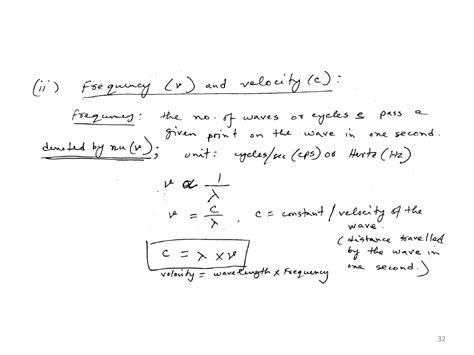 (ii) Frequency (ν) and velocity (c) :
Frequency : the no. of waves or cycles pass a
given point on the wave in one second.
denoted by nu (ν) ; unit: cycles/sec (cps) or Hertz (Hz)
ν ∝ 1/λ
ν = c/λ , c = constant / velocity of the
wave.
(distance travelled
by the wave in
one second.)
c = λ × ν
velocity = wavelength × Frequency
32